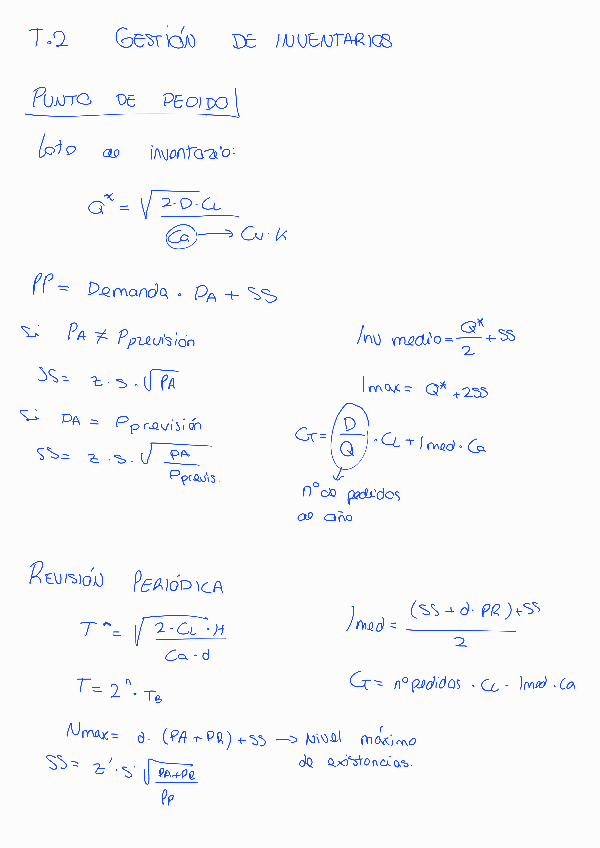 T.2 GESTIÓN DE INVENTARIOS
PUNTO DE PEDIDO
Loto de inventario:
Q* = √(2·D·CL / Ca) → Cu·K
PP = Demanda · PA + SS
Si PA ≠ Pprevisión
SS = z · s · √PA
Si PA = Pprevisión
SS = z · s · √(PA / Pprevis.)
Inv medio = Q*/2 + SS
Imax = Q* + 2SS
G = D/Q · CL + Imed · Ca
nº de pedidos
al año
REVISIÓN PERIÓDICA
T* = √(2·CL·H / Ca·d)
T = 2ⁿ · TB
Nmax = d · (PA + PR) + SS → Nivel máximo
de existencias.
SS = z' · s · √(PA+PR / PP)
Imed = (SS + d · PR) + SS / 2
G = nº pedidos · CL · Imed · Ca